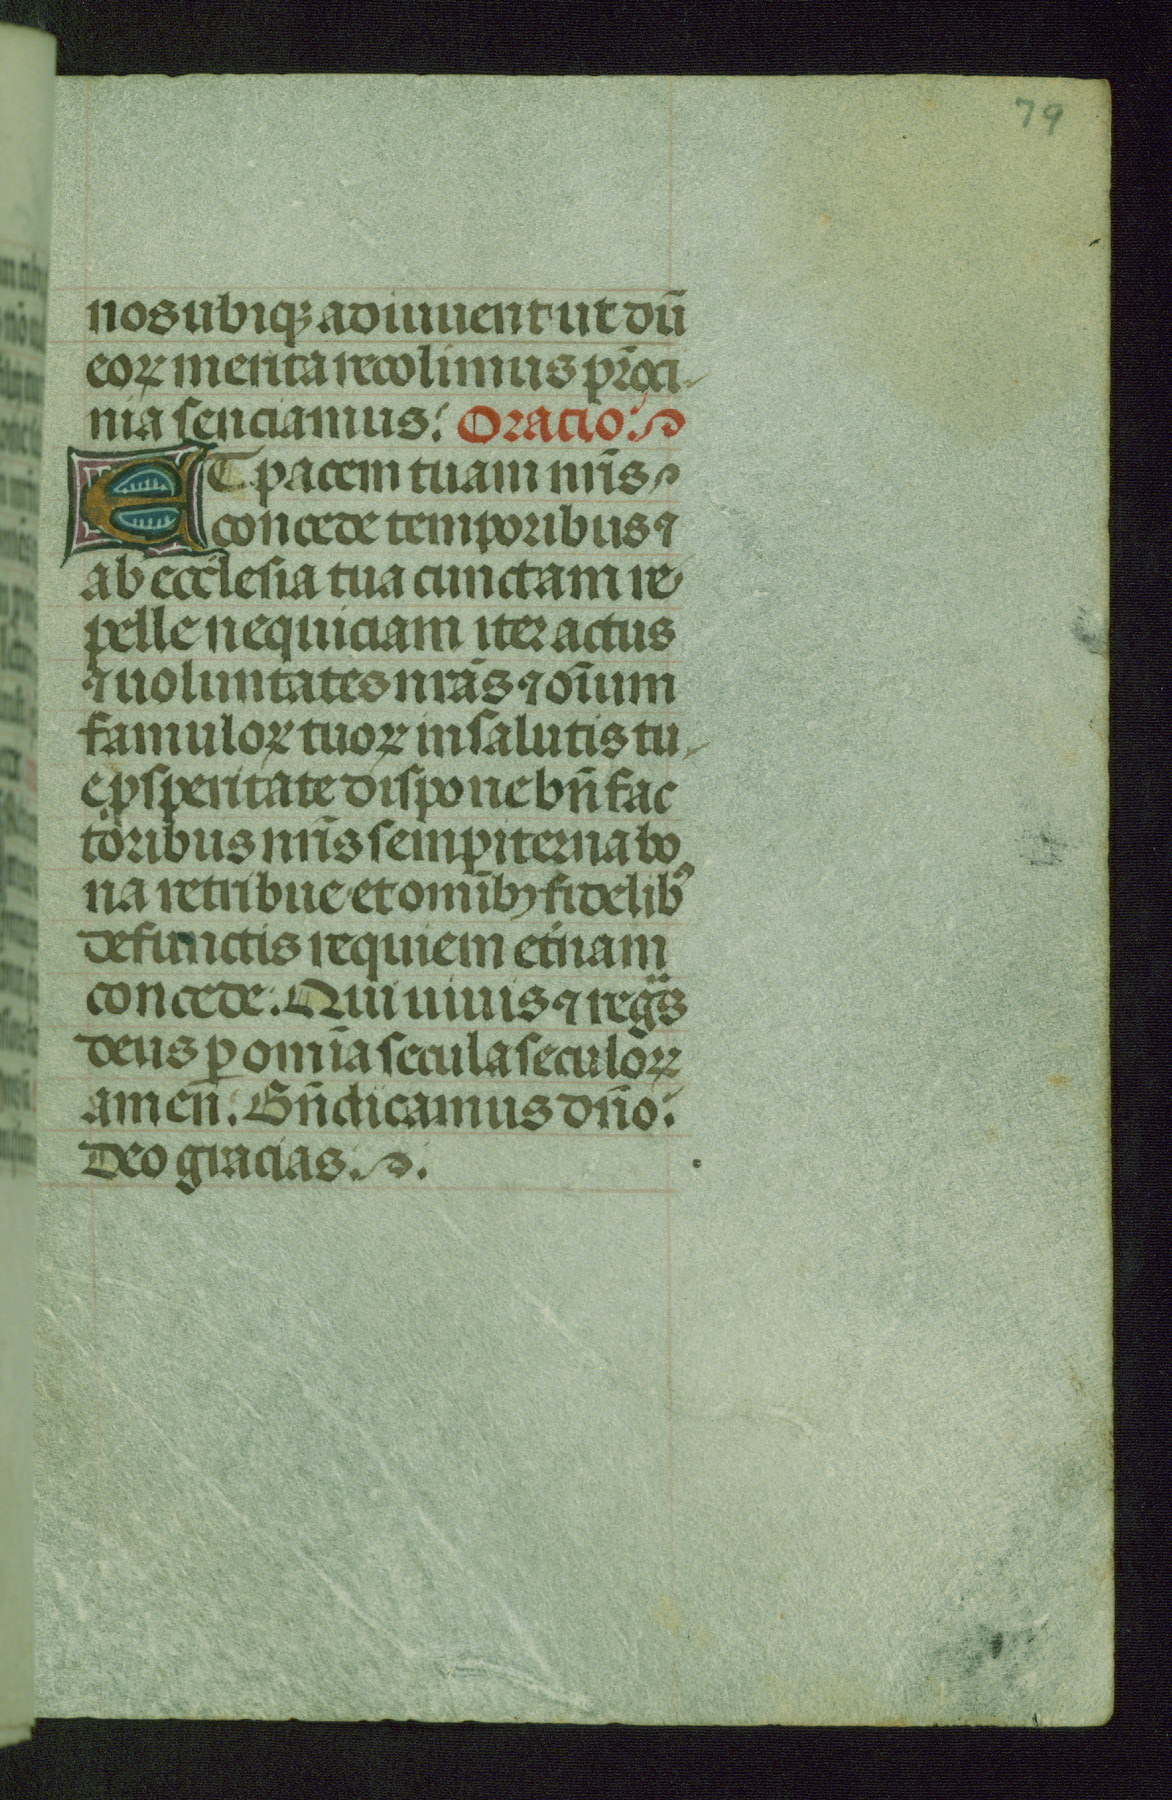 79
nos ubiq; adiuuent ut dū
eoꝝ merita recolimus pr̄oci-
nia senciamus: Oracio:
ET pacem tuam nr̄is
concede temporibus ⁊
ab eccl̄esia tua cunctam re
pelle nequiciam iter actus
⁊ uoluntates nr̄as ⁊ oīum
famuloꝝ tuoꝝ in salutis tu-
e ꝓsperitate dispone bn̄fac
toribus nr̄is sempiterna bo
na retribue et omībꝫ fidelibꝰ
defunctis requiem et̄nam
concede. Qui uiuis ⁊ regͣs
deus ꝑ omīa secula seculoꝝ
amen̄. Bn̄dicamus dn̄o:
Deo gracias.